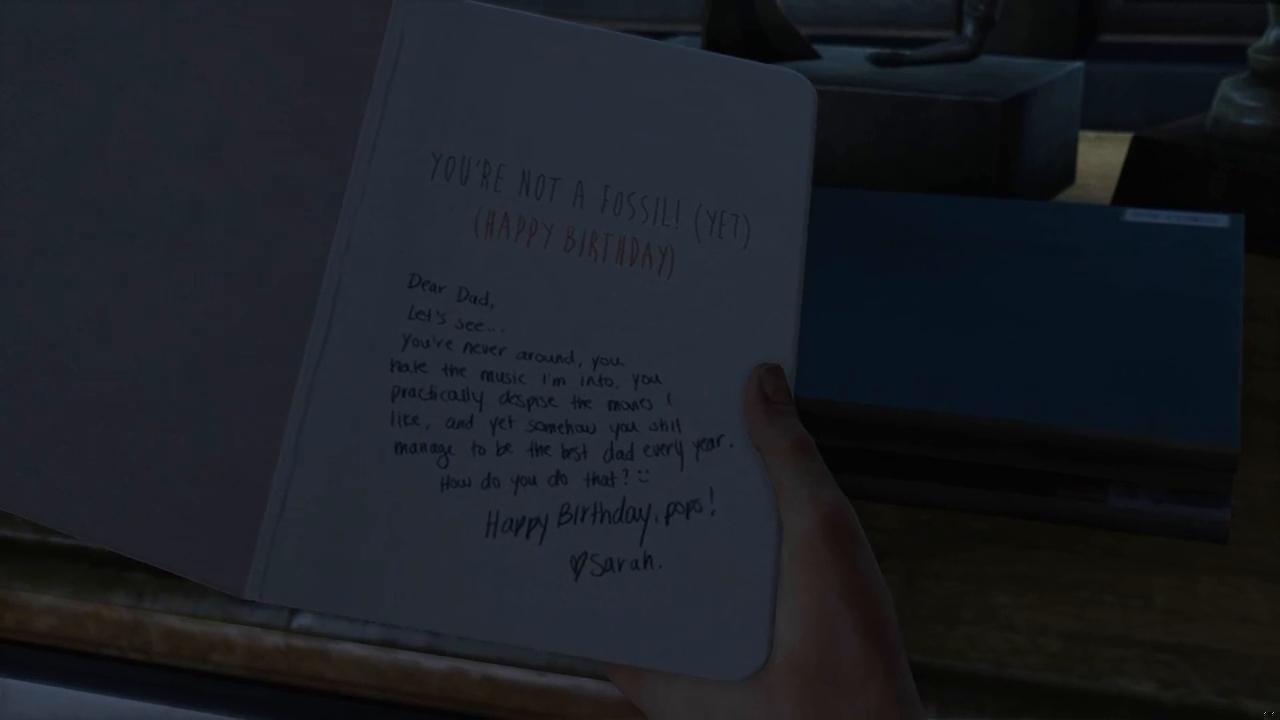 YOU'RE NOT A FOSSIL! (YET)
(HAPPY BIRTHDAY)
Dear Dad,
Let's see...
you're never around, you
hate the music I'm into, you
practically despise the movies I
like, and yet somehow you still
manage to be the best dad every year.
How do you do that? :)
Happy Birthday, pops!
♥Sarah.